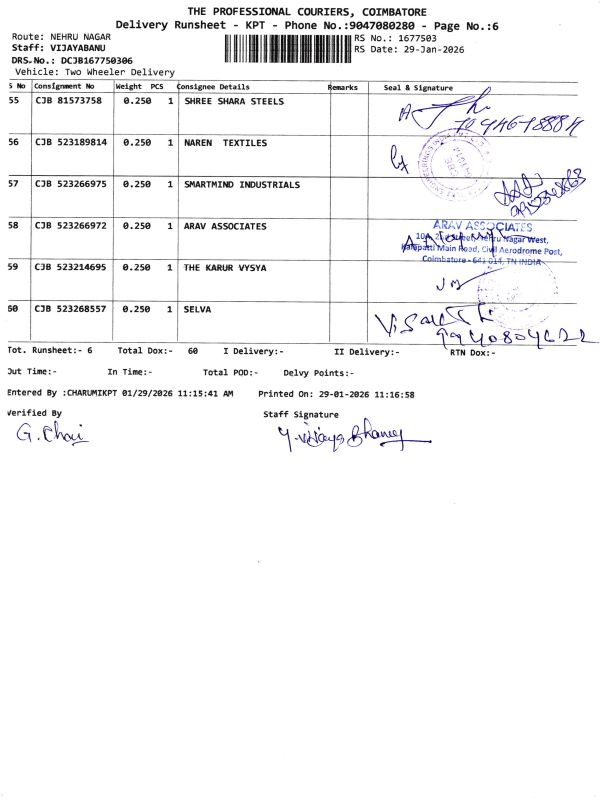 THE PROFESSIONAL COURIERS, COIMBATORE
Delivery Runsheet - KPT - Phone No.:9047080280 - Page No.:6
Route: NEHRU NAGAR
RS No.: 1677503
Staff: VIJAYABANU
RS Date: 29-Jan-2026
DRS.No.: DCJB167750306
Vehicle: Two Wheeler Delivery
S No Consignment No Weight PCS Consignee Details Remarks Seal & Signature
55 CJB 81573758 0.250 1 SHREE SHARA STEELS
56 CJB 523189814 0.250 1 NAREN TEXTILES
57 CJB 523266975 0.250 1 SMARTMIND INDUSTRIALS
58 CJB 523266972 0.250 1 ARAV ASSOCIATES
ARAV ASSOCIATES
Nehru Nagar West,
Kalapatti Main Road, Civil Aerodrome Post,
Coimbatore - 641 014, TN INDIA
59 CJB 523214695 0.250 1 THE KARUR VYSYA
60 CJB 523268557 0.250 1 SELVA
9940804622
Tot. Runsheet:- 6 Total Dox:- 60 I Delivery:- II Delivery:- RTN Dox:-
Out Time:- In Time:- Total POD:- Delvy Points:-
Entered By :CHARUMIKPT 01/29/2026 11:15:41 AM Printed On: 29-01-2026 11:16:58
Verified By Staff Signature
G. Chari Y. Vijaya Bhanu